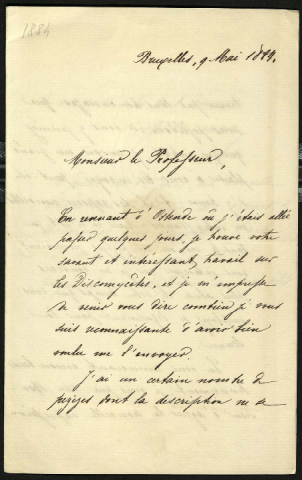 1884
Bruxelles, 9 Mai 1884.
Monsieur le Professeur,
En venant d'Ostende où j'étais allée
passer quelques jours, je trouve votre
savant et intéressant travail sur
les Discomycètes, et je m'empresse
de venir vous dire combien je vous
suis reconnaissante d'avoir bien
voulu me l'envoyer.
J'ai un certain nombre de
pezizes dont la description ne se